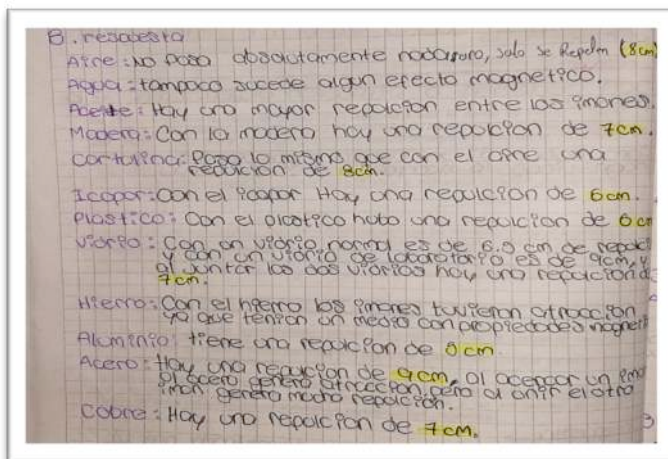 B. respuesta
Aire: NO pasa absolutamente nada raro, solo se Repelen (8cm)
Agua: tampoco sucede algun efecto magnetico.
Aceite: Hay una mayor repulcion entre los imanes.
Madera: Con la madera hay una repulcion de 7cm.
Cartulina: Pasa lo mismo que con el aire una
repulcion de 8cm.
Icopor: Con el icopor Hay una repulcion de 6cm.
Plastico: Con el plastico hubo una repulcion de 6cm
Vidrio: Con un vidrio normal es de 6.5 cm de repulci
y con un vidrio de laboratorio es de 9cm, y
al juntar los dos vidrios hay una repulcion d
7cm.
Hierro: Con el hierro los imanes tuvieron atraccion
ya que tenian un medio con propiedades magneti
Aluminio: tiene una repulcion de cm
Acero: Hay una repulcion de 9cm, al acercar un ima
al acero genero atraccion, pero al unir el otro
iman, genero mucha repulcion.
Cobre: Hay una repulcion de 7cm.